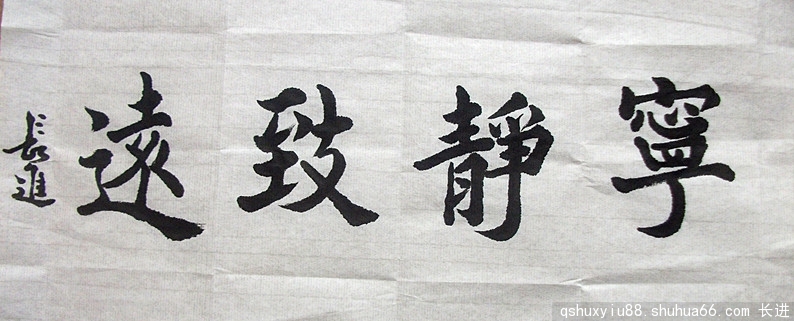 寧靜致遠
長進
qshuxyiu88.shuhua66.com 长进